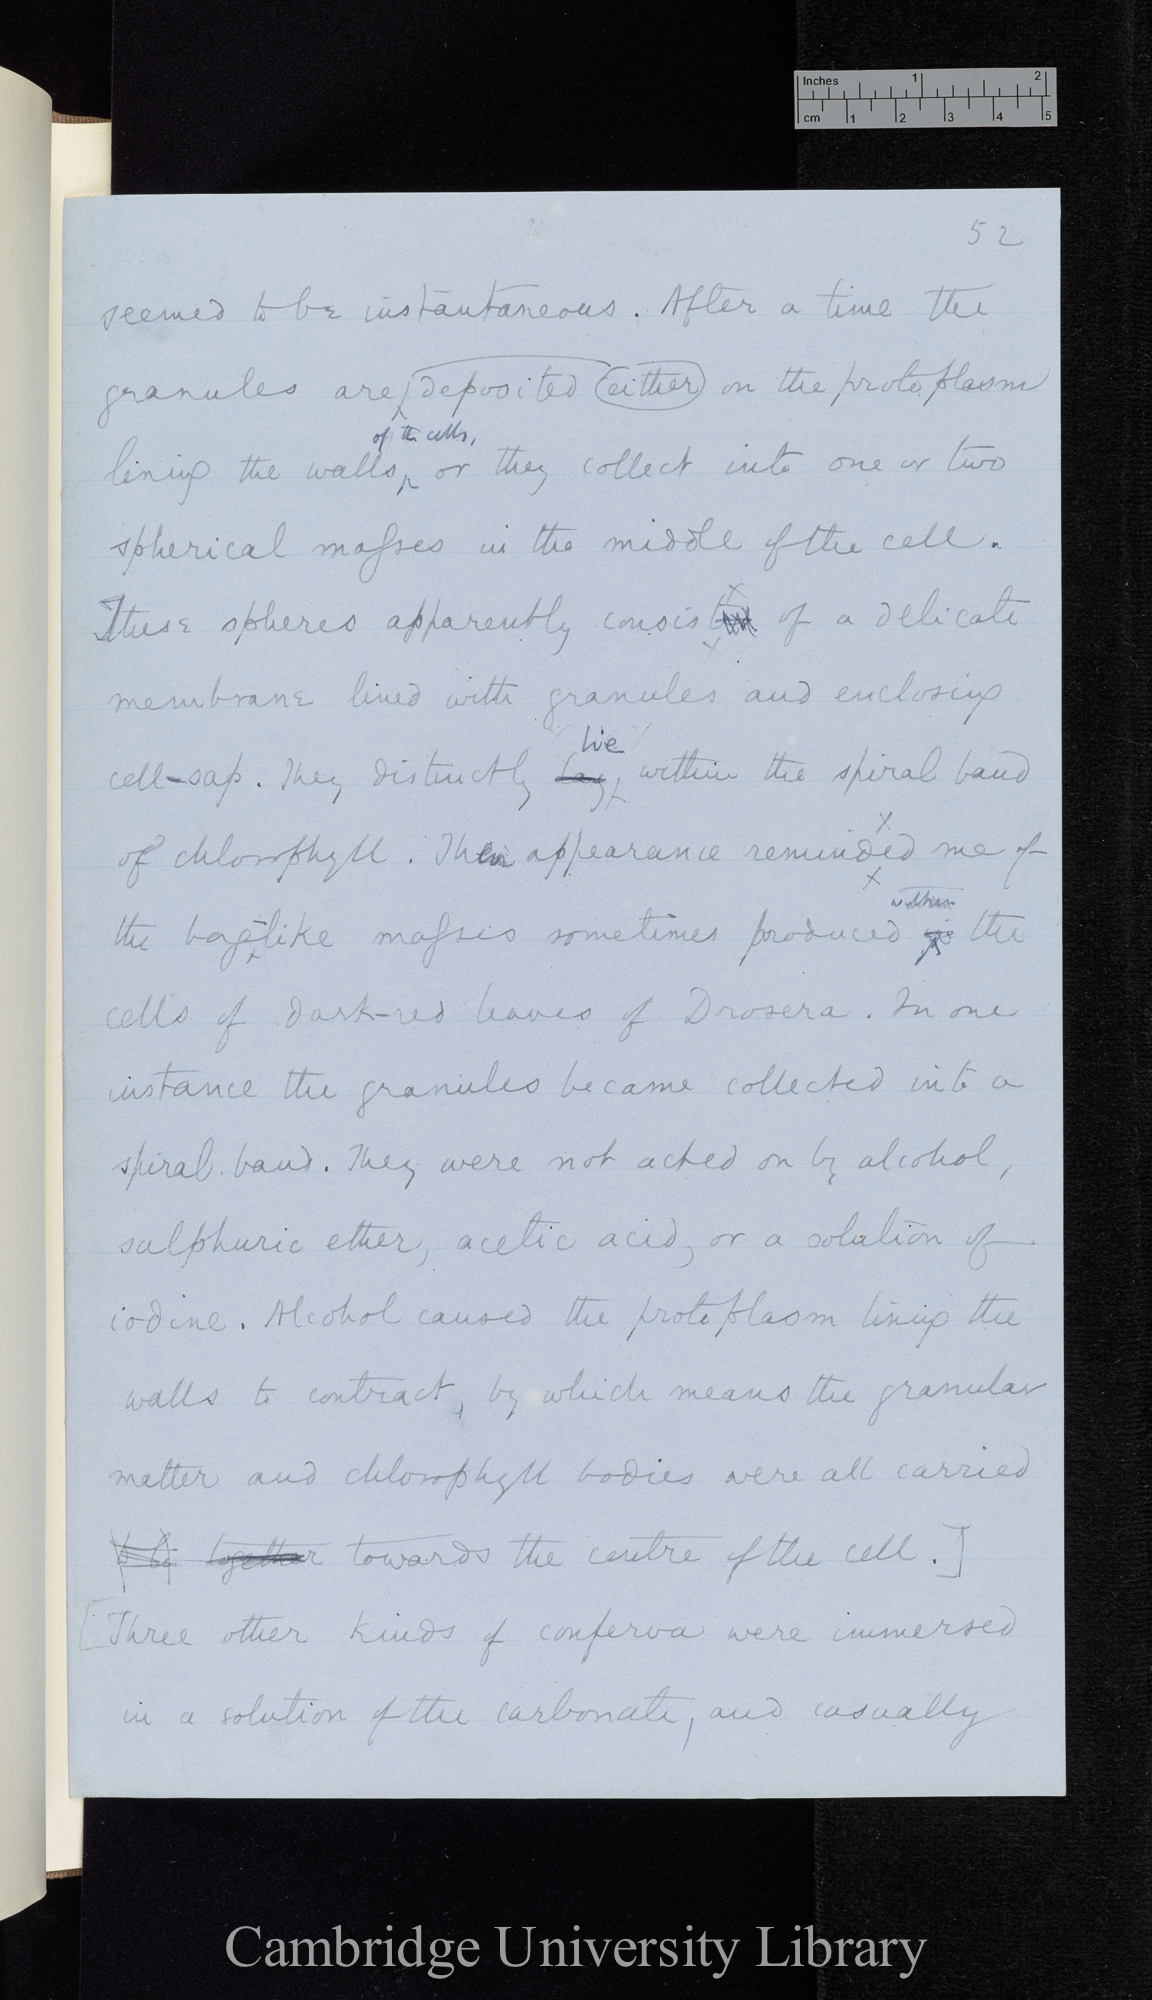 Inches 1 2
cm 1 2 3 4 5
52
seemed to be instantaneous. After a time the
granules are deposited either on the protoplasm
of the cells,
lining the walls, or they collect into one or two
spherical masses in the middle of the cell.
These spheres apparently consist of a delicate
membrane lined with granules and enclosing
lie
cell-sap. They distinctly lay, within the spiral band
of chlorophyll. Their appearance reminded me of
within
the bag-like masses sometimes produced in the
cells of dark-red leaves of Drosera. In one
instance the granules became collected into a
spiral band. They were not acted on by alcohol,
sulphuric ether, acetic acid, or a solution of
iodine. Alcohol caused the protoplasm lining the
walls to contract, by which means the granular
matter and chlorophyll bodies were all carried
together towards the centre of the cell.]
[Three other kinds of conferva were immersed
in a solution of the carbonate, and casually
Cambridge University Library